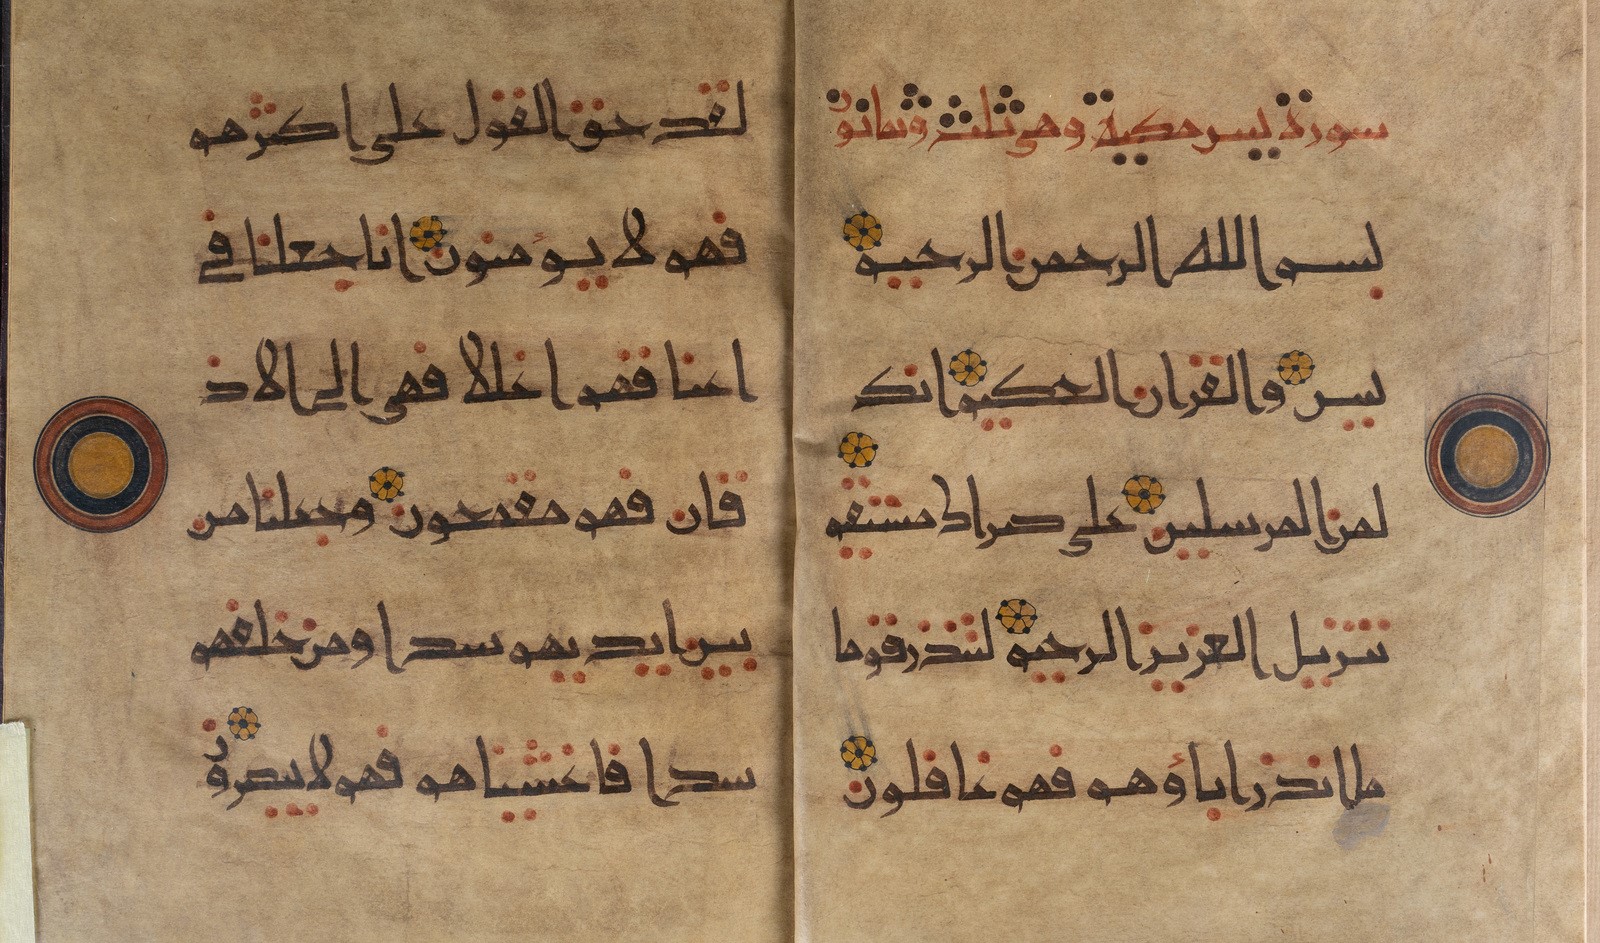 سورة يس مكية وهي ثلث وثمانون
بسم الله الرحمن الرحيم
يس والقران الحكيم انك
لمن المرسلين على صراط مستقيم
تنزيل العزيز الرحيم لتنذر قوما
ما انذر اباؤهم فهم غافلون
لقد حق القول على اكثرهم
فهم لا يؤمنون انا جعلنا في
اعناقهم اغلالا فهي الى الاذ
قان فهم مقمحون وجعلنا من
بين ايديهم سدا ومن خلفهم
سدا فاغشيناهم فهم لا يبصرون